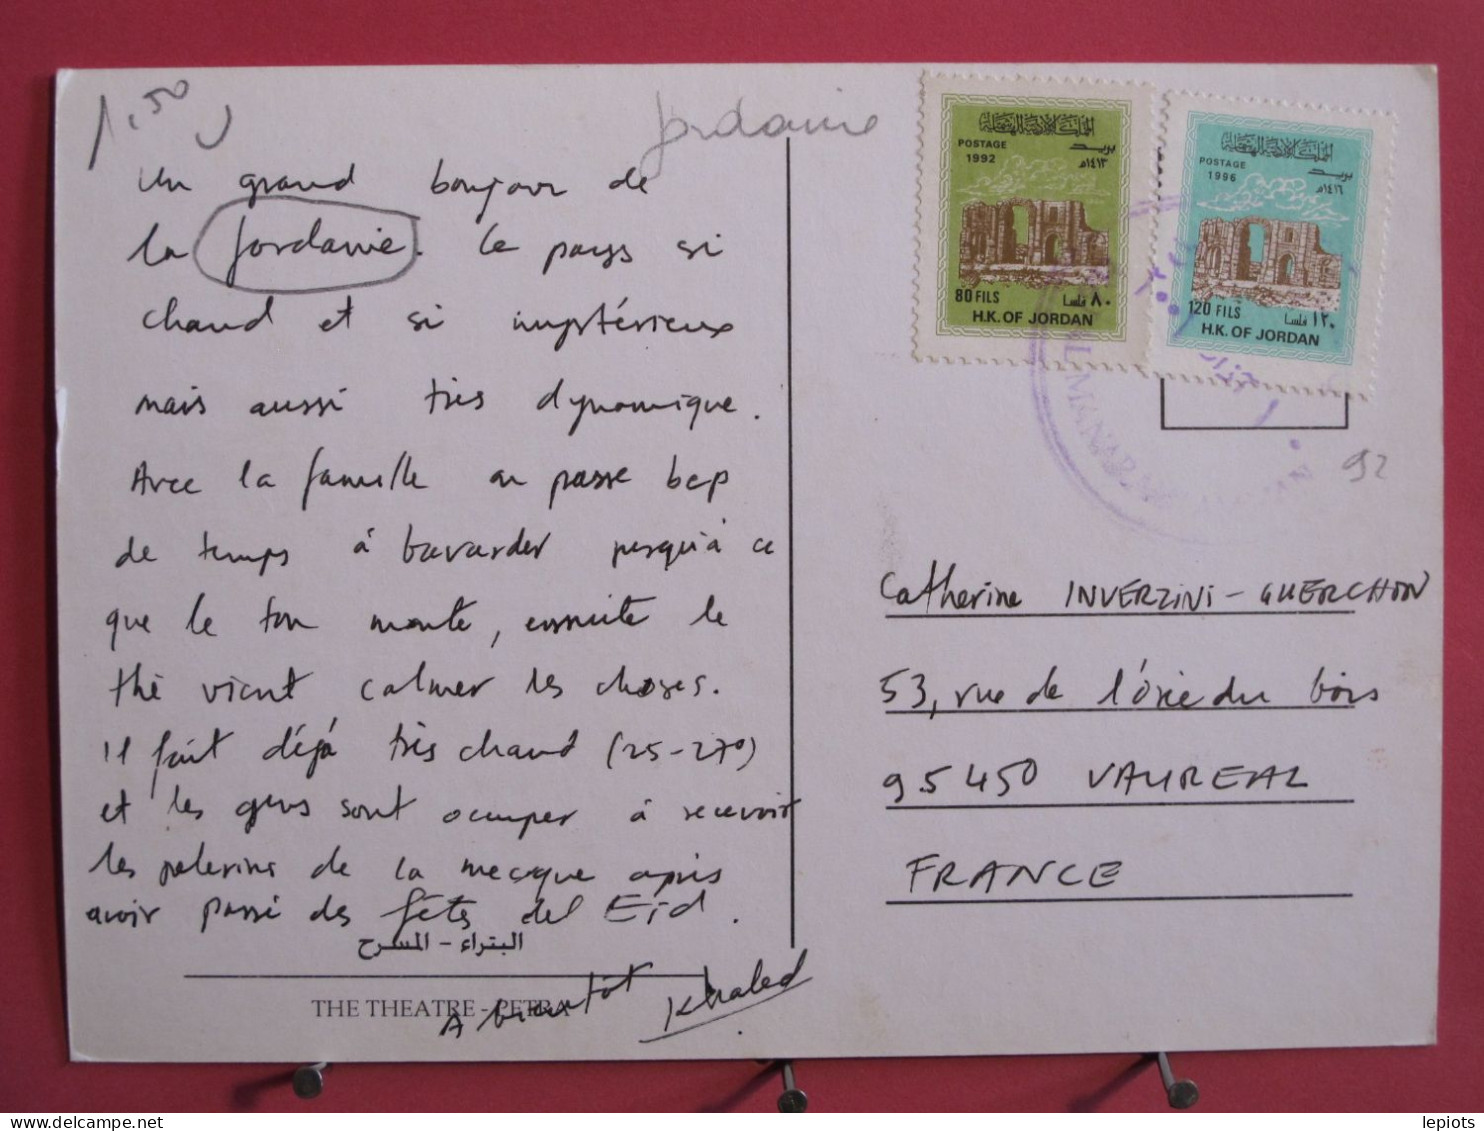 1,50
Jordanie
Un grand bonjour de
la Jordanie. Le pays si
chaud et si mystérieux
mais aussi très dynamique.
Avec la famille on passe bcp
de temps à bavarder jusqu'à ce
que le ton monte, ensuite le
thé vient calmer les choses.
Il fait déjà très chaud (25-27°)
et les gens sont occuper à recevoir
les pelerins de la mecque après
avoir passé des fêtes del Eid.
البتراء - المسرح
THE THEATRE - PETRA
A bientôt Khaled
المملكة الأردنية الهاشمية
POSTAGE بريد
1992 ١٤١٣هـ
80 FILS ٨٠ فلسا
H.K. OF JORDAN
المملكة الأردنية الهاشمية
POSTAGE بريد
1996 ١٤١٦هـ
120 FILS ١٢٠ فلسا
H.K. OF JORDAN
92
Catherine INVERZINI-GUERCHON
53, rue de l'Orée du bois
95450 VAUREAL
FRANCE
lepiots
delcampe.net